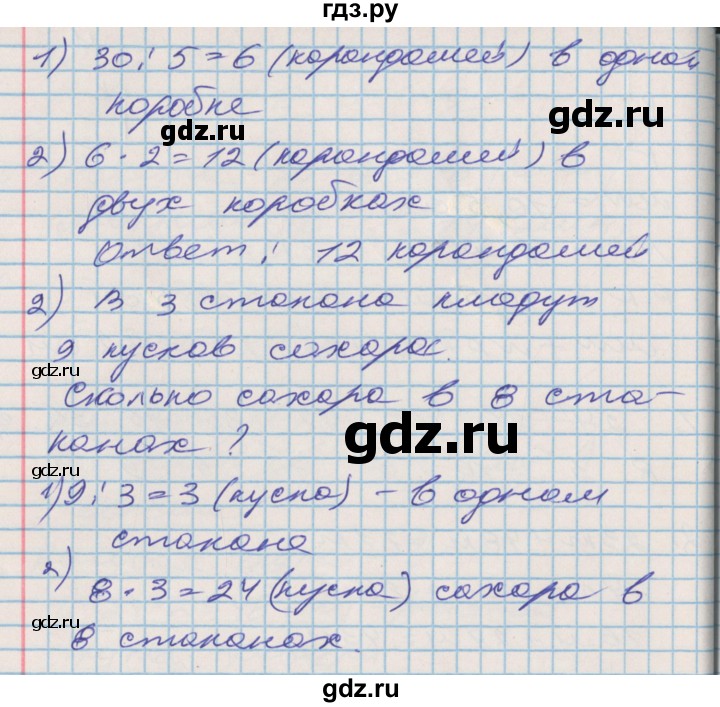 гдз.ру
1) 30 : 5 = 6 (карандашей) в одной
коробке
gdz.ru
gdz.ru
2) 6 · 2 = 12 (карандашей) в
двух коробках
Ответ: 12 карандашей
2) В 3 стакана кладут
9 кусков сахара.
gdz.ru
Сколько сахара в 8 ста-
канах?
gdz.ru
gdz.ru
1) 9 : 3 = 3 (куска) - в одном
стакана
2)
8 · 3 = 24 (куска) сахара в
8 стаканах.
gdz.ru
gdz.ru